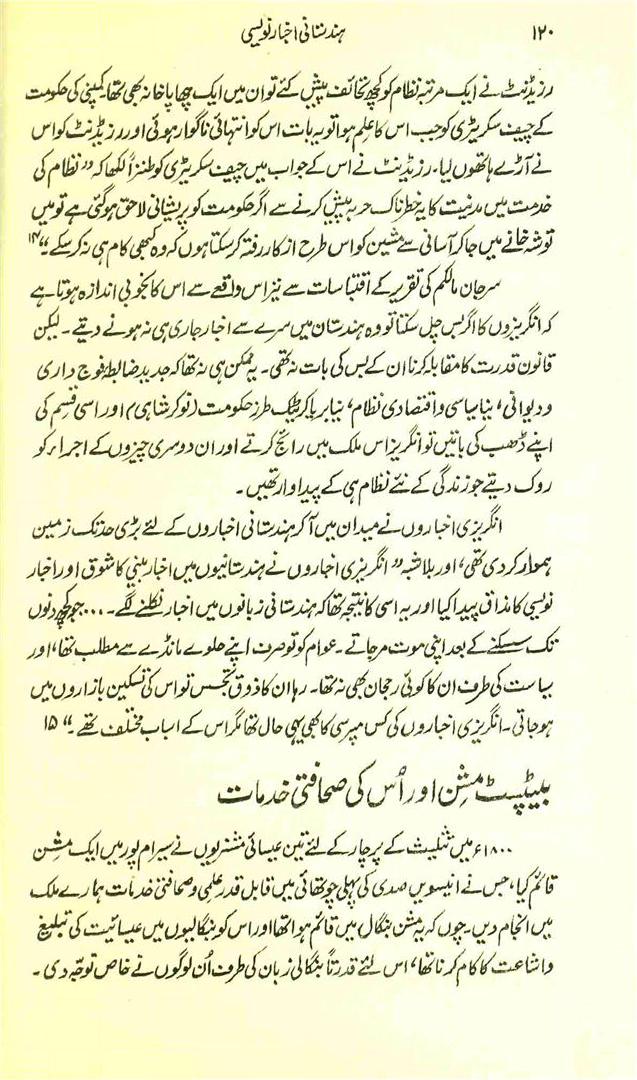 ۱۲۰ ہندستانی اخبار نویسی
رزیڈنٹ نے ایک مرتبہ نظام کو کچھ تحائف پیش کئے تو ان میں ایک چھاپا خانہ بھی تھا، کمپنی کی حکومت
کے چیف سکریٹری کو جب اس کا علم ہوا تو یہ بات اس کو انتہائی ناگوار ہوئی اور رزیڈنٹ کو اس
نے آڑے ہاتھوں لیا۔ رزیڈینٹ نے اس کے جواب میں چیف سکریٹری کو طنزاً لکھا کہ ”نظام کی
خدمت میں مدنیت کا یہ خطرناک حربہ پیش کرنے سے اگر حکومت کو پریشانی لاحق ہو گئی ہے تو میں
توشہ خانے میں جا کر آسانی سے مشین کو اس طرح از کار رفتہ کر سکتا ہوں کہ وہ کبھی کام ہی نہ کر سکے۔“ ۱۴
سرجان مالکم کی تقریر کے اقتباسات سے نیز اس واقعے سے اس کا بخوبی اندازہ ہوتا ہے
کہ انگریزوں کا اگر بس چل سکتا تو وہ ہندستان میں سرے سے اخبار جاری ہی نہ ہونے دیتے۔ لیکن
قانون قدرت کا مقابلہ کرنا ان کے بس کی بات نہ تھی۔ یہ ممکن ہی نہ تھا کہ جدید ضابطہ فوج داری
و دیوانی، نیا سیاسی و اقتصادی نظام، نیا بریاکریٹک طرز حکومت (نوکر شاہی) اور اسی قسم کی
اپنے ڈھب کی باتیں تو انگریز اس ملک میں رائج کرتے اور ان دوسری چیزوں کے اجراء کو
روک دیتے جو زندگی کے نئے نظام ہی کے پیداوار تھیں۔
انگریزی اخباروں نے میدان میں آ کر ہندستانی اخباروں کے لئے بڑی حد تک زمین
ہموار کر دی تھی، اور بلا شبہ ”انگریزی اخباروں نے ہندستانیوں میں اخبار بینی کا شوق اور اخبار
نویسی کا مذاق پیدا کیا اور یہ اسی کا نتیجہ تھا کہ ہندستانی زبانوں میں اخبار نکلنے لگے۔ ... جو کچھ دنوں
تک سسکنے کے بعد اپنی موت مر جاتے۔ عوام کو تو صرف اپنے حلوے مانڈے سے مطلب تھا، اور
سیاست کی طرف ان کا کوئی رجحان بھی نہ تھا۔ رہا ان کا ذوق تجسس تو اس کی تسکین بازاروں میں
ہو جاتی۔ انگریزی اخباروں کی کس مپرسی کا بھی یہی حال تھا مگر اس کے اسباب مختلف تھے۔“ ۱۵
بیپٹسٹ مشن اور اُس کی صحافتی خدمات
۱۸۰۰ء میں تثلیث کے پرچار کے لئے تین عیسائی مشنریوں نے سیرام پور میں ایک مشن
قائم کیا، جس نے انیسویں صدی کی پہلی چوتھائی میں قابل قدر علمی و صحافتی خدمات ہمارے ملک
میں انجام دیں۔ چوں کہ یہ مشن بنگال میں قائم ہوا تھا اور اس کو بنگالیوں میں عیسائیت کی تبلیغ
و اشاعت کا کام کرنا تھا، اس لئے قدرتاً بنگالی زبان کی طرف اُن لوگوں نے خاص توجّہ دی۔